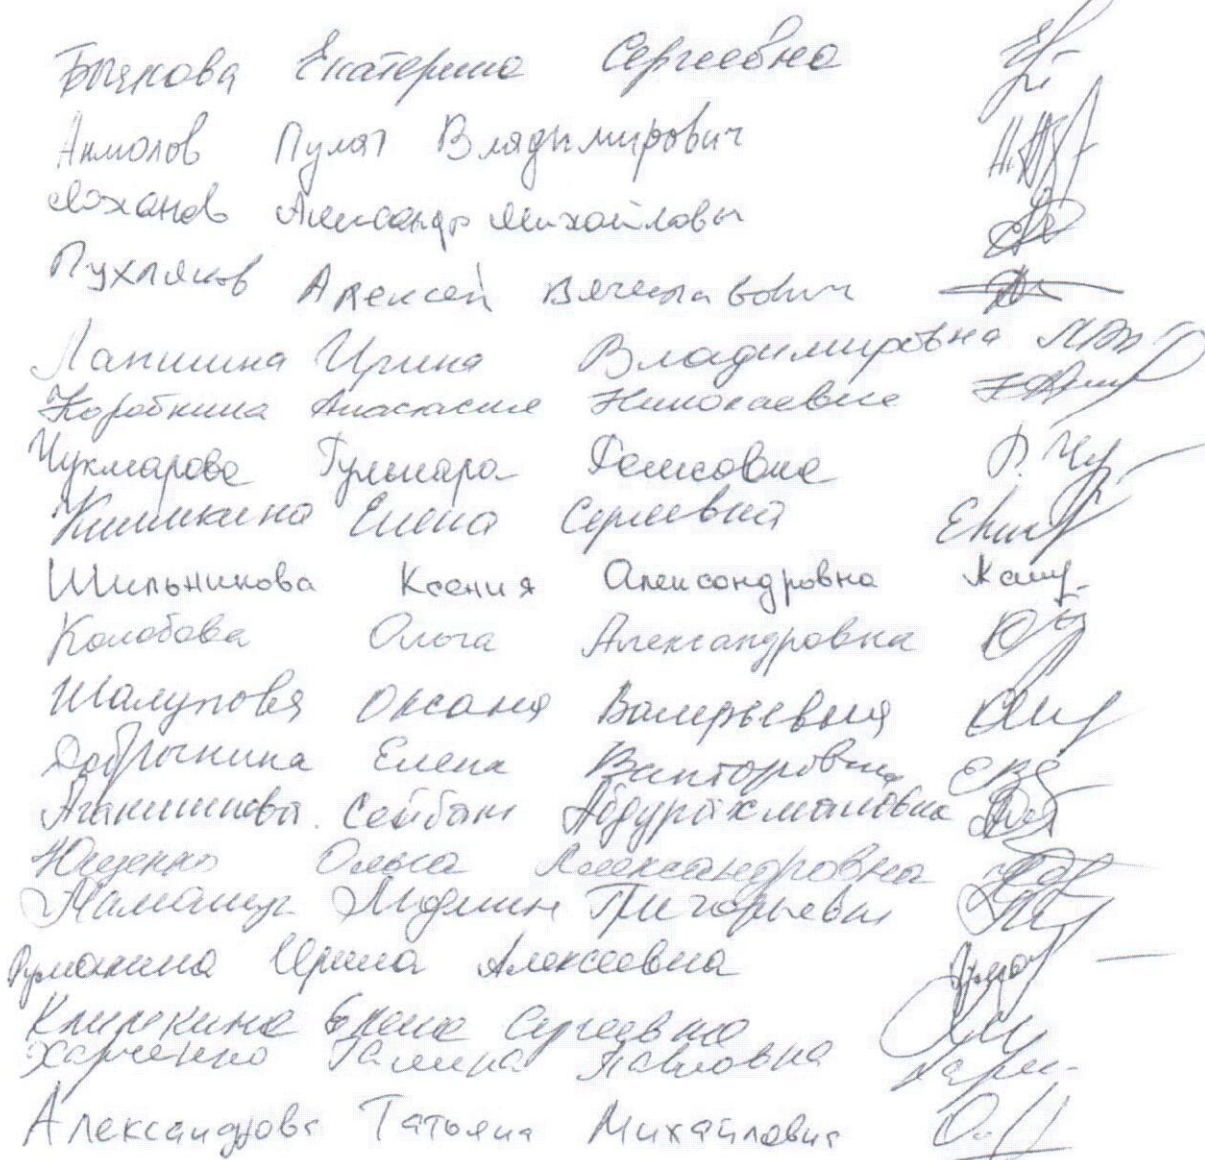 Бычкова Екатерина Сергеевна
Акмолов Пулат Владимирович
Лоханов Александр Михайлович
Пухляков Алексей Вячеславович
Лапшина Ирина Владимировна
Коробкина Анастасия Николаевна
Чукмарова Гульнара Фаисовна
Кишкина Елена Сергеевна
Шильникова Ксения Александровна
Колобова Ольга Александровна
Шалупова Оксана Валерьевна
Добрынина Елена Викторовна
Аганишиева Сейбат Абдурахмановна
Ющенко Ольга Александровна
Григорьевич
Румянина Ирина Алексеевна
Елена Сергеевна
Харченко Галина Павловна
Александрова Татьяна Михайловна